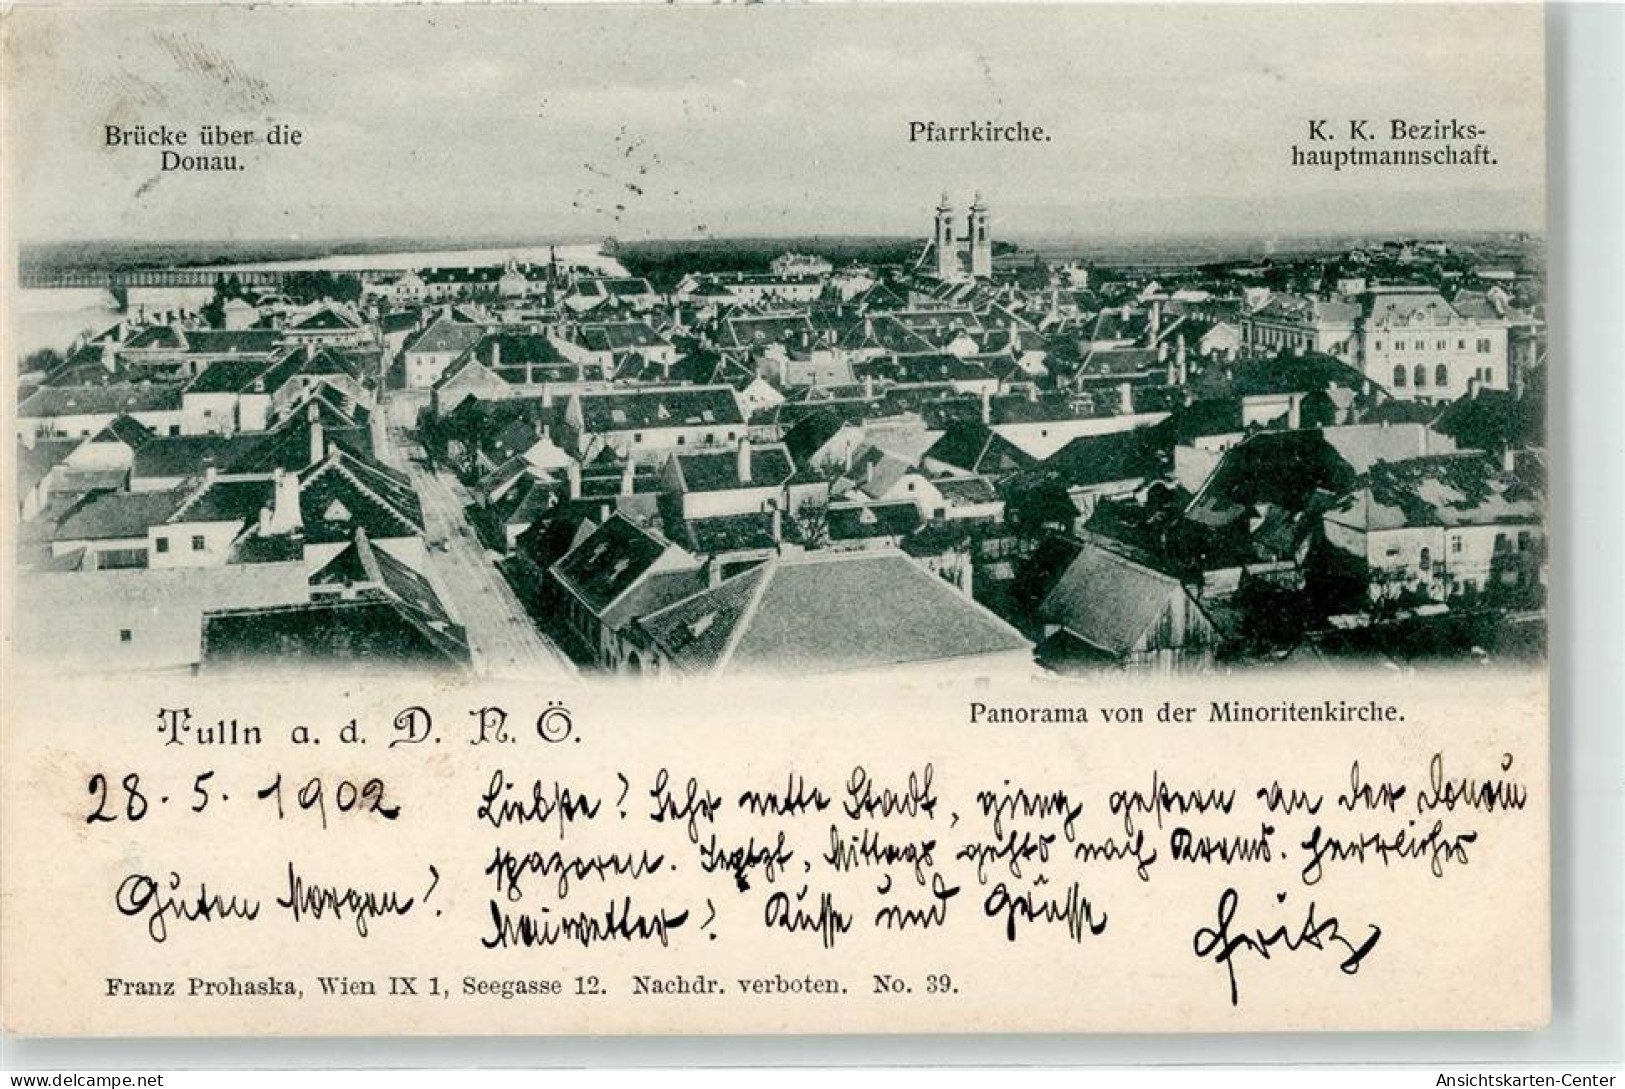 Brücke über die
Donau.
Pfarrkirche.
K. K. Bezirks-
hauptmannschaft.
Tulln a. d. D. N. Ö.
Panorama von der Minoritenkirche.
28. 5. 1902
Liebste! Sehr nette Stadt, gieng gestern an der Donau
spazoren. Jetzt, Mittags gehts nach Krems. Herrliches
Guten Morgen!
Maiwetter! Küsse und Grüsse
Fritz
Franz Prohaska, Wien IX 1, Seegasse 12. Nachdr. verboten. No. 39.
delcampe.net
Ansichtskarten-Center